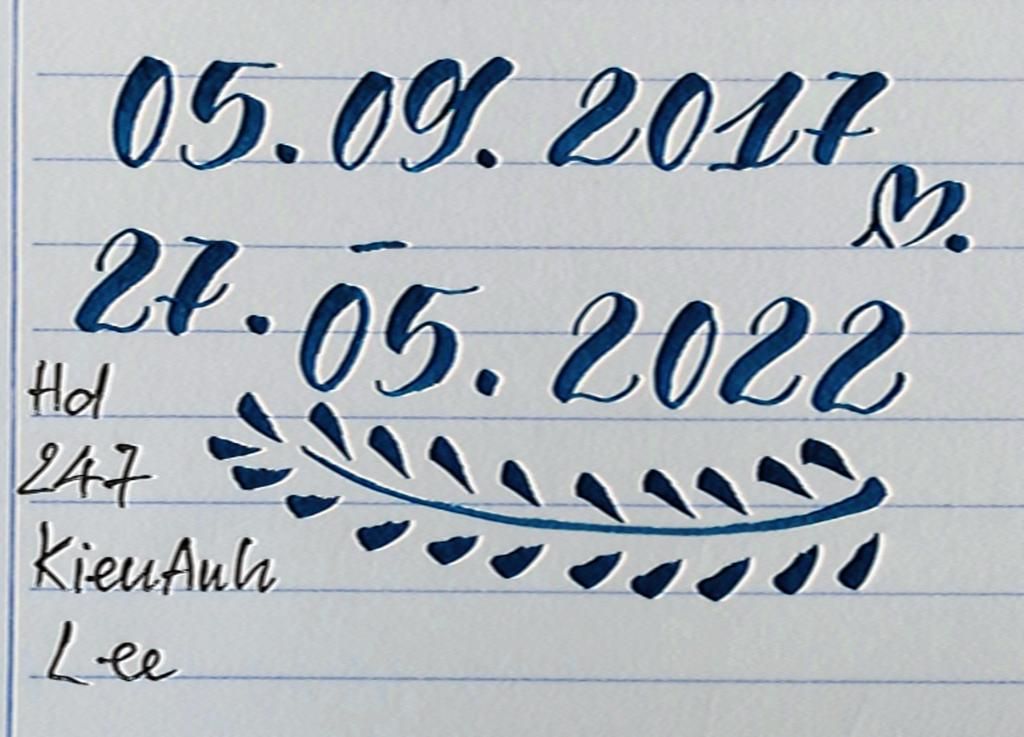 05.09.2017
27. - 05.2022
Hd
247
KieuAnh
Lee